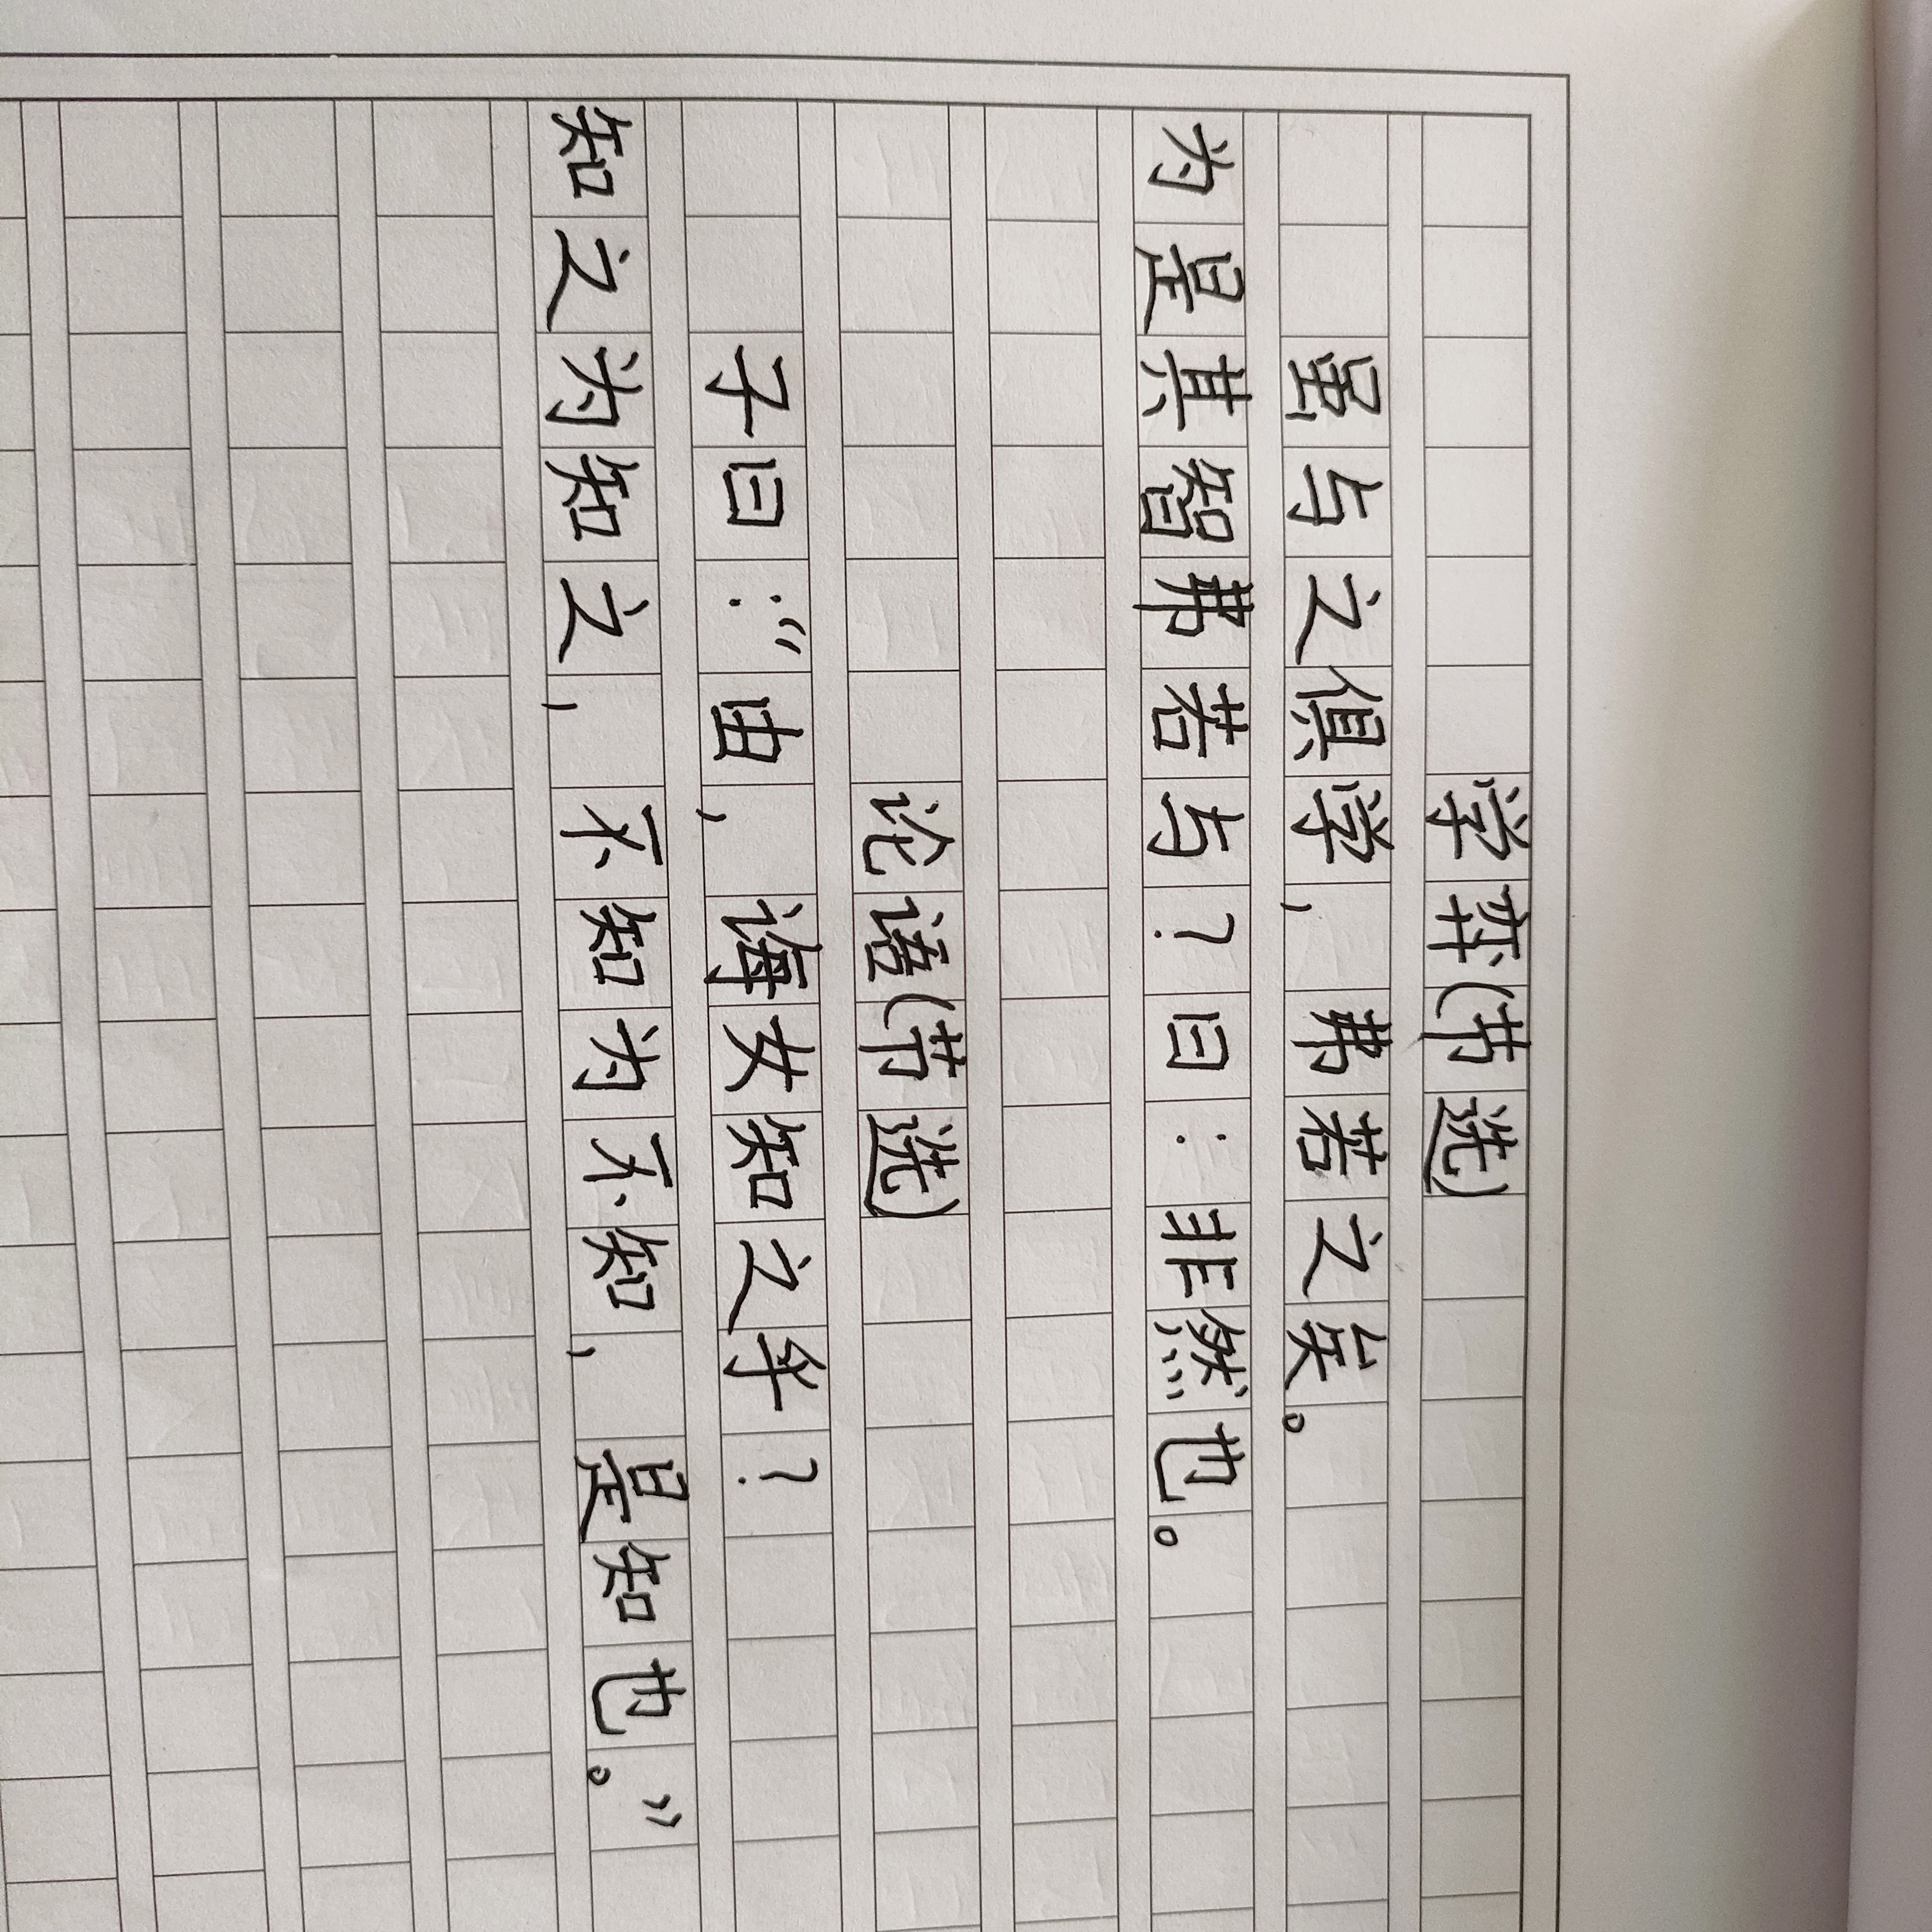 学弈(节选)
虽与之俱学,弗若之矣。
为是其智弗若与?曰:非然也。
论语(节选)
子曰:“由,诲女知之乎?
知之为知之,不知为不知,是知也。”